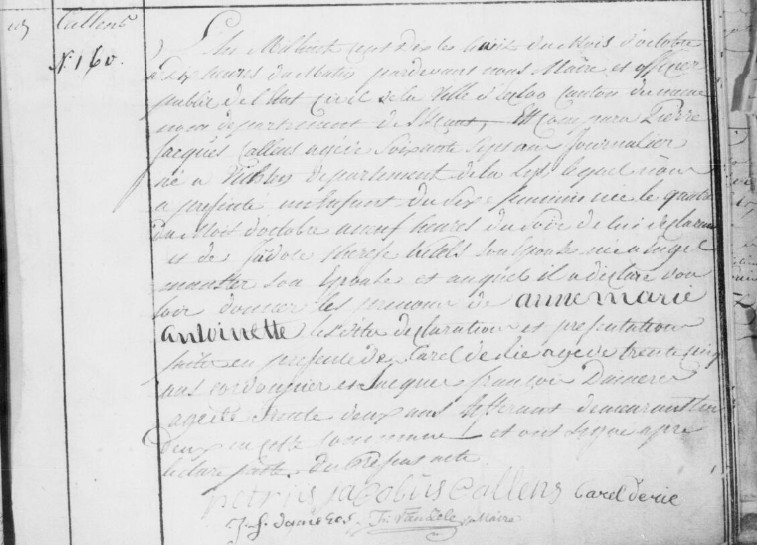 Callens
N.° 160.
L'an Mil huit cent dix le huit du Mois d'octobre
a dix heures du Matin pardevant nous Maire et officier
public de l'Etat Civil de la Ville d'Eecloo Canton du meme
nom departement de l'Escaut, Est comparu Pierre
Jacques Callens agé de Soixante Sept ans Journalier
né a departement de la Lys lequel nous
a presenté un Enfant du Sexe feminin née le quatre
du Mois d'octobre a neuf heures du Soir de lui declarant
et de therese son Epouse née a
son Epouse et auquel il a declaré vou
loir donner les prenoms de anne marie
antoinette les dites declaration et presentation
faite en presence de Carel de rie agé de trente cinq
ans cordonnier et Jacques françois Dameros
agé de trente deux ans demeurant tous
deux en cette commune et ont Signé apre
lecture faite du Present acte
petrus jacobus Callens Carel derie
J. f. dameros Maire